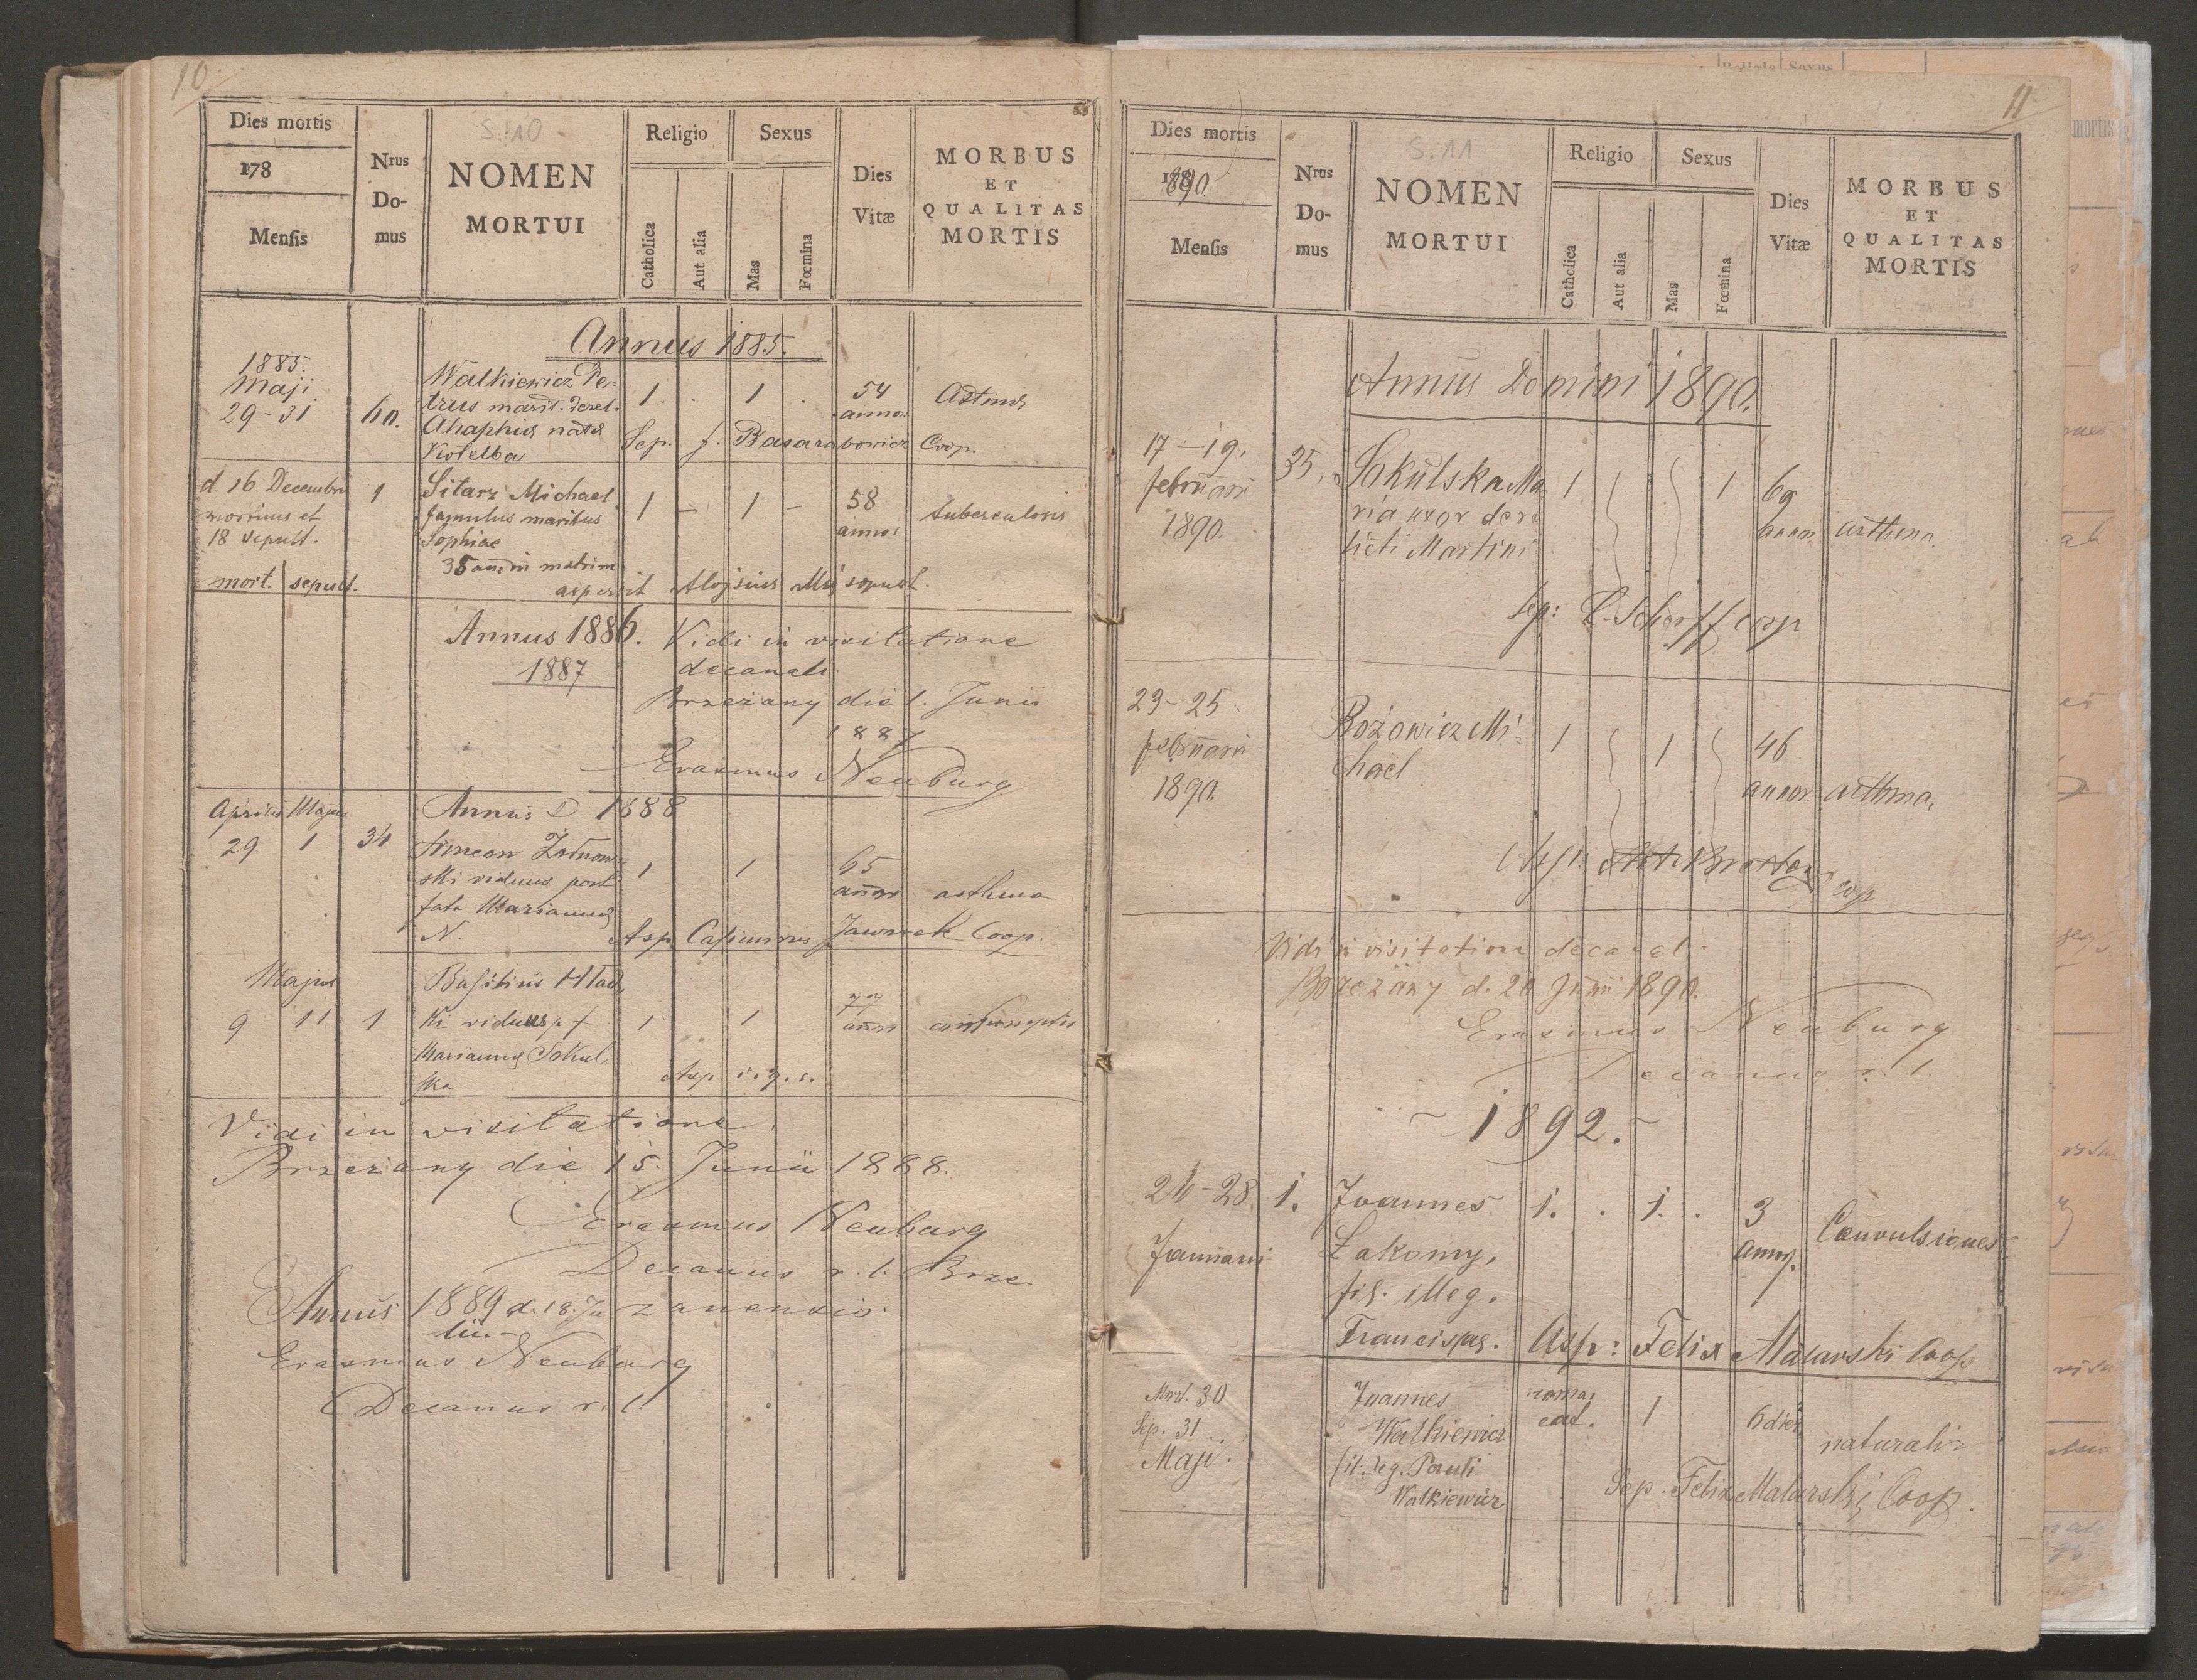 10
S. 10
Dies mortis
178
Mensis
Nrus Do-mus
NOMEN
MORTUI
Religio
Catholica
Aut alia
Sexus
Mas
Fœmina
Dies
Vitæ
MORBUS
ET
QUALITAS
MORTIS
Annus 1885.
1885.
Maji
29-31
60.
Walkiewicz Pe-
trus marit. derel.
Ahaphia nata
Kotelba
1 . 1 .
54
annor
Astma
Sep. J. Basarabowicz Coop.
d 16 Decembris
mortuus et
18 sepult.
1
Sitarz Michael
famulus maritus
Sophiae
35 ann in matrim
1 - 1 -
58
annos
tuberculosis
mort. sepult.
asperxit Alojsius
Annus 1886.
1887
Vidi in visitatione
decanali
Brzeżany die 1. Junii
1887
Erasmus Neuburg
Annus D 1888
Aprilis Majus
29 1
34
Simeon
ski viduus post
fata Marianna
N.
1 1
65
annor
asthma
Asp Casimirus Coop.
Majus
9 11
1
Basilius Hlad,
ki viduus p f
Marianna Sokul,
ska
1 1
77
annor
Asp.
Vidi in visitatione
Brzeżany die 15. Junii 1888.
Erasmus Neuburg
Decanus r. l. Brze
zanensis.
Annus 1889 d. 18. Ju
lii.-
Erasmus Neuburg
Decanus r. l.
11
S. 11
Dies mortis
1890.
Mensis
Nrus Do-mus
NOMEN
MORTUI
Religio
Catholica
Aut alia
Sexus
Mas
Fœmina
Dies
Vitæ
MORBUS
ET
QUALITAS
MORTIS
Annus Domini 1890.
17-19.
februarii
1890.
35.
Sokulska Ma
ria uxor dere
licti Martini
1 1
69
annor
asthma.
Sep:
23-25.
februarii
1890.
Bożowicz Mi-
chael
1 1
46
annor.
asthma.
Asp:
Coop
Vidi in visitatione decanal.
Brzeżany d. 20 Junii 1890.
Erasmus Neuburg
Decanus r. l.
- 1892. -
26-28.
Januarii
1.
Joannes
Łakomy,
fil. illeg.
Franciscae.
1. . 1. .
3
annor.
Convulsiones.
Asp: Felix Malarski Coop
Mort. 30
Sep. 31
Maji.
Joannes
Walkiewicz
fil. leg. Pauli
Walkiewicz
roma,
cat.
1
6 dies
naturalis
Sep. Felix Malarski Coop.